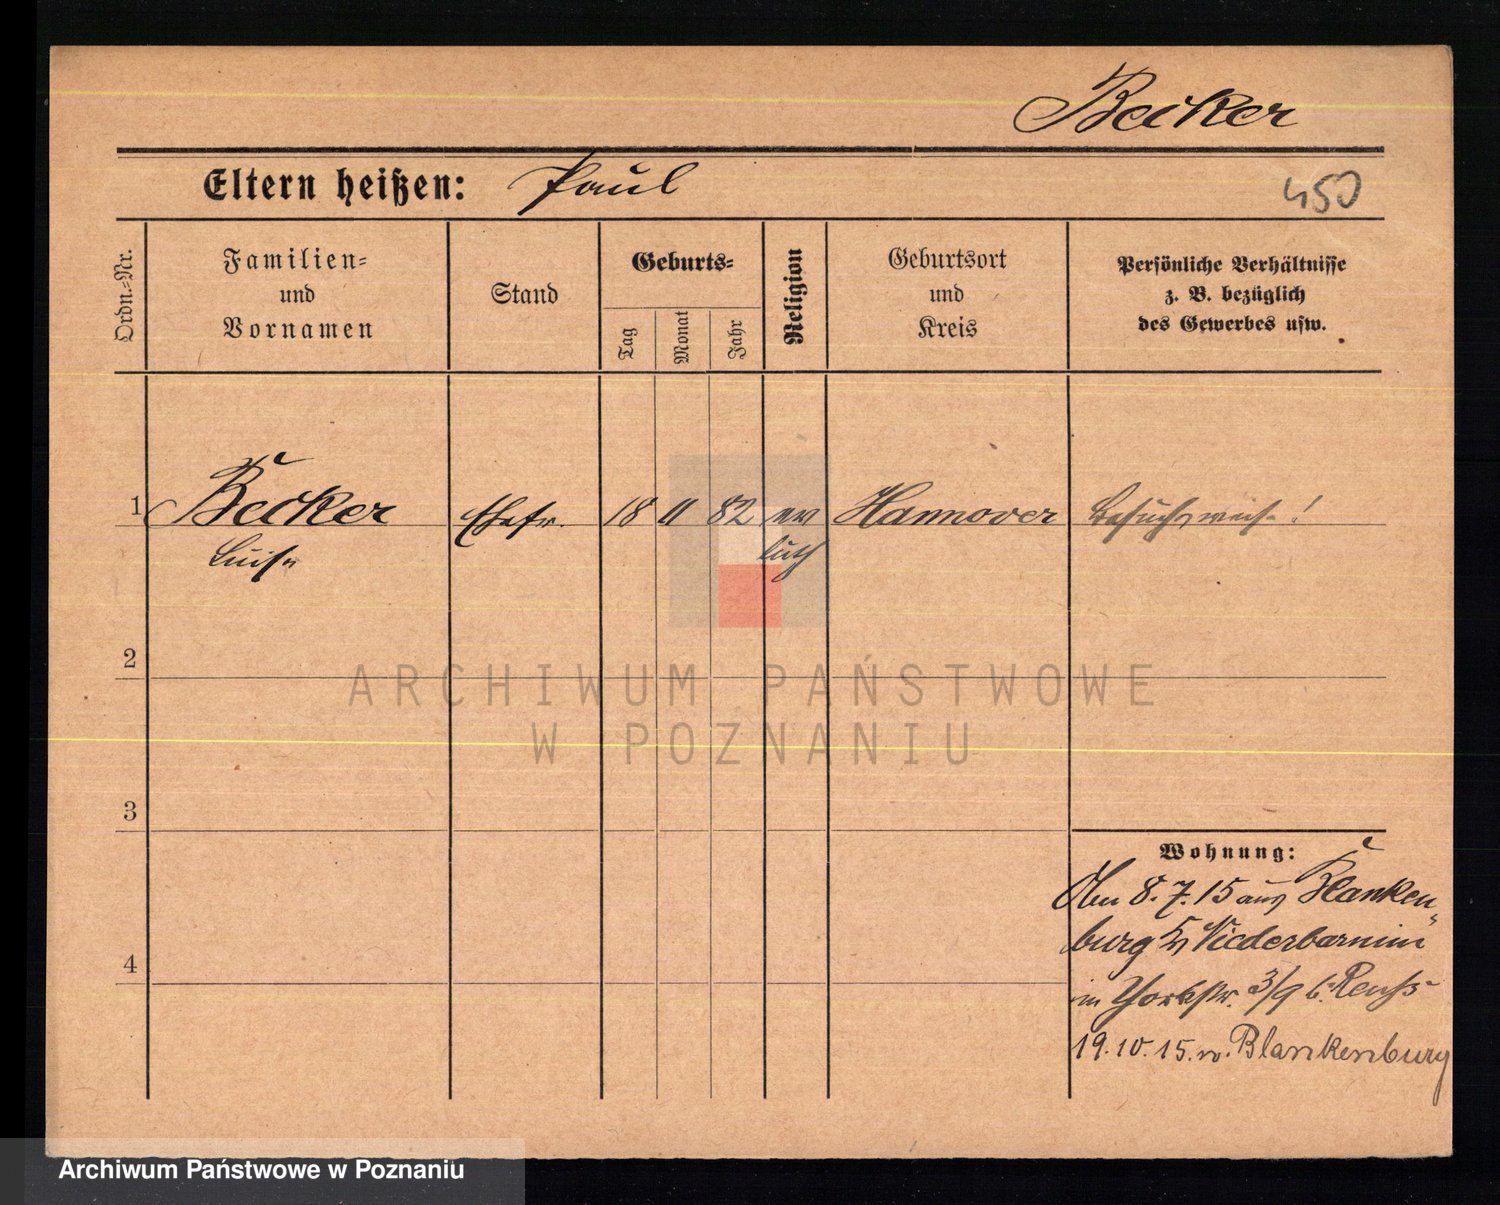 Becker
Eltern heißen: Paul
450
Ordn.-Nr.
Familien-
und
Vornamen
Stand
Geburts-
Tag
Monat
Jahr
Religion
Geburtsort
und
Kreis
Persönliche Verhältnisse
z. B. bezüglich
des Gewerbes usw.
1 Becker Ehefr. 18 11 82 ev Hannover Besuchsweise!
Luise luth
2
ARCHIWUM PAŃSTWOWE
W POZNANIU
3
Wohnung:
8.7.15 aus Blanken
burg Niederbarnim
in Yorkstr. 3/9 b. Reuss
19.10.15. n. Blankenburg
4
Archiwum Państwowe w Poznaniu